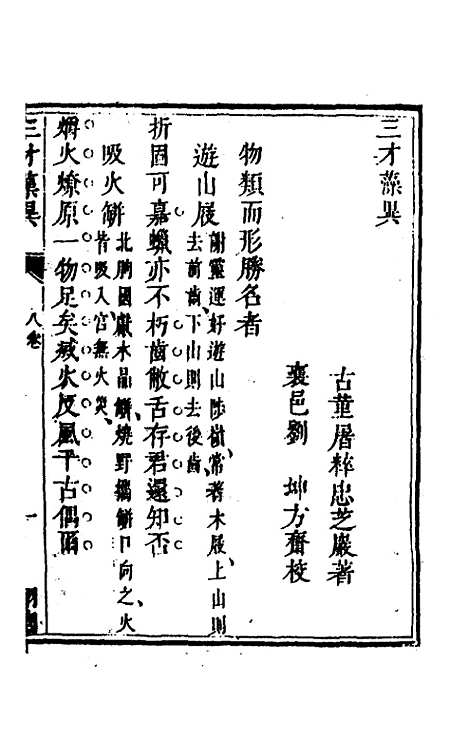 三才藻異
古董屠粹忠芝巖著
襄邑劉 坤方齋校
物類而形勝名者
遊山屐謝靈運好遊山陟嶺常著木屐上山則去前齒下山則去後齒
折固可嘉蠟亦不朽齒敝舌存君還知否
吸火缾北胸國獻水晶缾燒野擲缾口向之火皆吸入宫無火災
烟火燎原一物足矣滅火反風千古偶爾
三才藻異
八卷
一